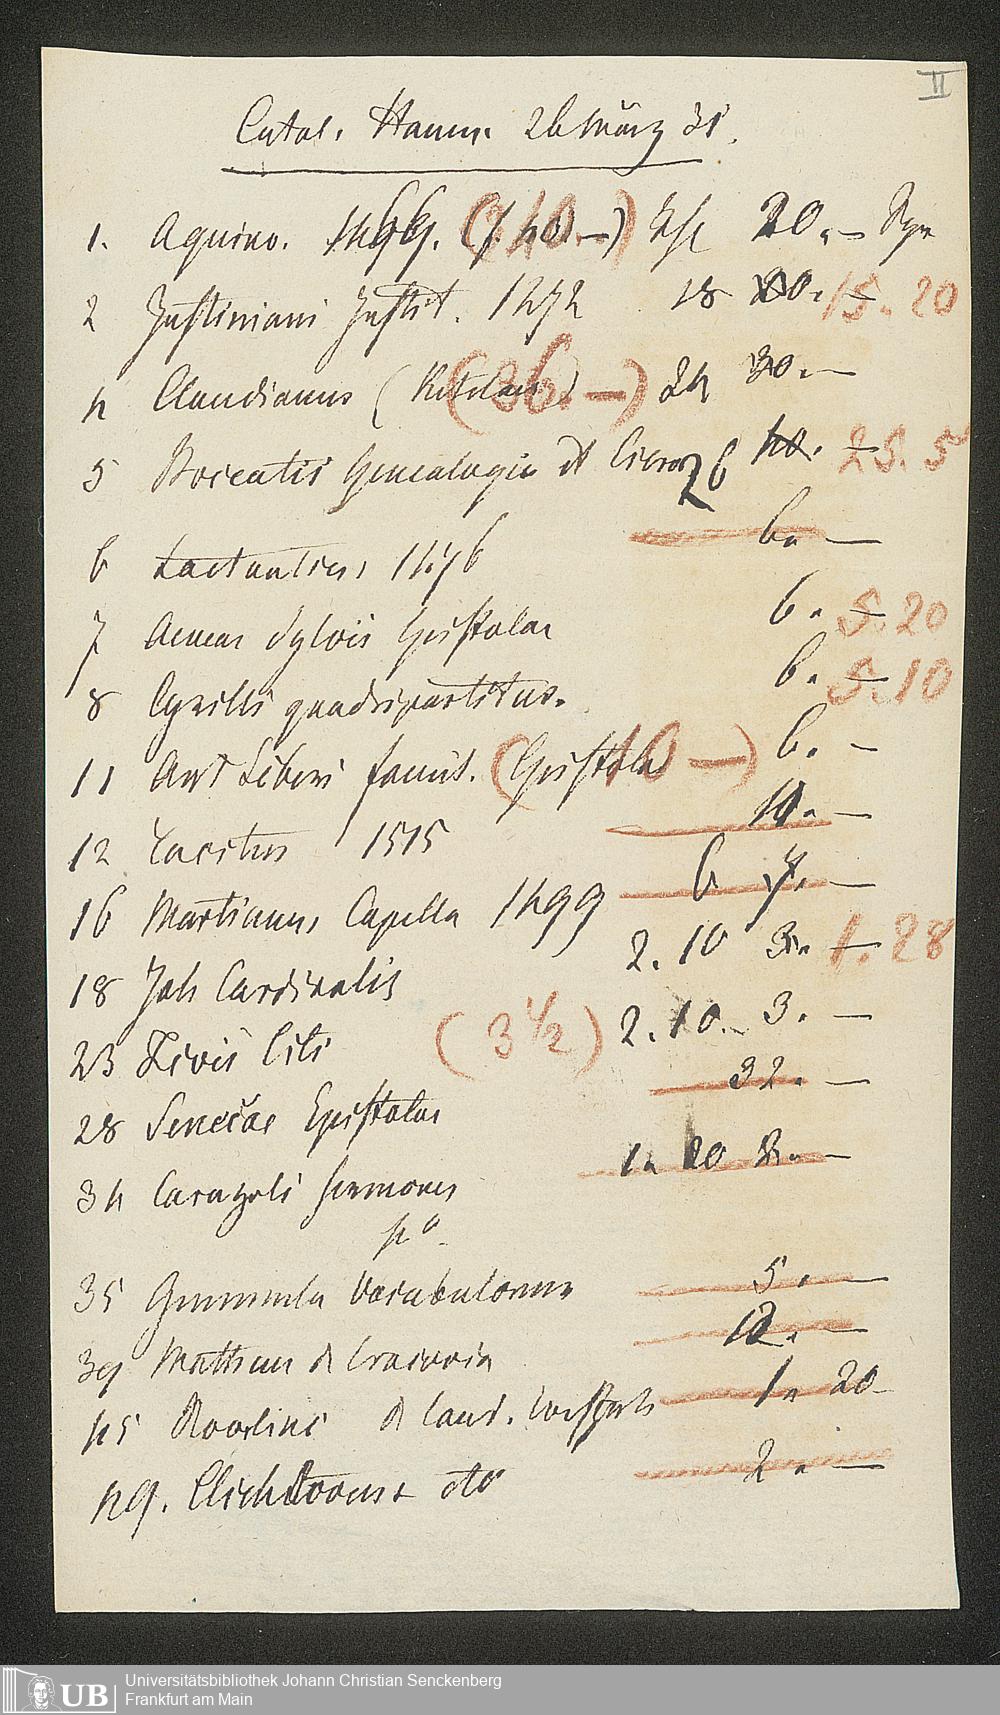 II
Catal. Hamm. 26 März 31.
1. Aquino. 1467. (140. —) 20. —
2 Justiniani Instit. 1472 18 20. — 15. 20
4 Claudianus ( (36. —) 24 30. —
5 Boccatii Genealogie et 26 40. — 25. 5
6 Lactantius 1476 6. —
7 Aeneae Sylvii Epistolae 6. — 5. 20
8 Cyrilli quadripartitus. 6. — 5. 10
11 Epistola (10 —) 6. —
12 Tacitus 1515 10. —
16 Martianus Capella 1499 6 7. —
18 Joh Cardinalis 2. 10 3. — 1. 28
23 Livii (3 1/2) 2. 10. 3. —
28 Senecae Epistolae 32. —
34 Caragoli sermones 1. 20 2. —
4°
35 Gemmula Vocabulorum 5. —
39 Mattheus de Cracovia 12. —
45 de Laud. Westph 1. 20
49. Clichtoveus 2. —
UB Universitätsbibliothek Johann Christian Senckenberg
Frankfurt am Main